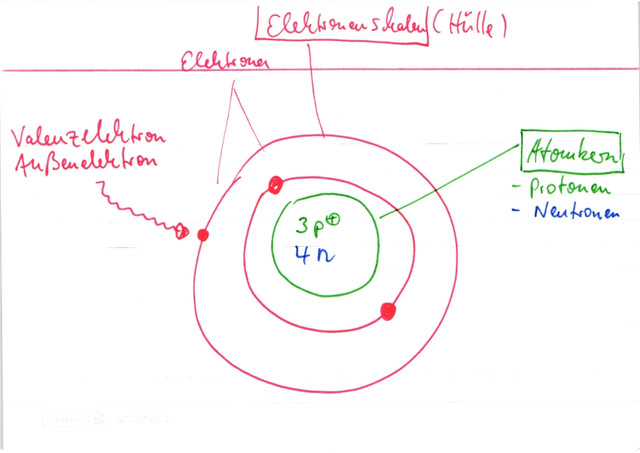 Elektronenschalen (Hülle)
Elektronen
Valenzelektron
Außenelektron
Atomkern
- Protonen
- Neutronen
3 p⊕
4 n